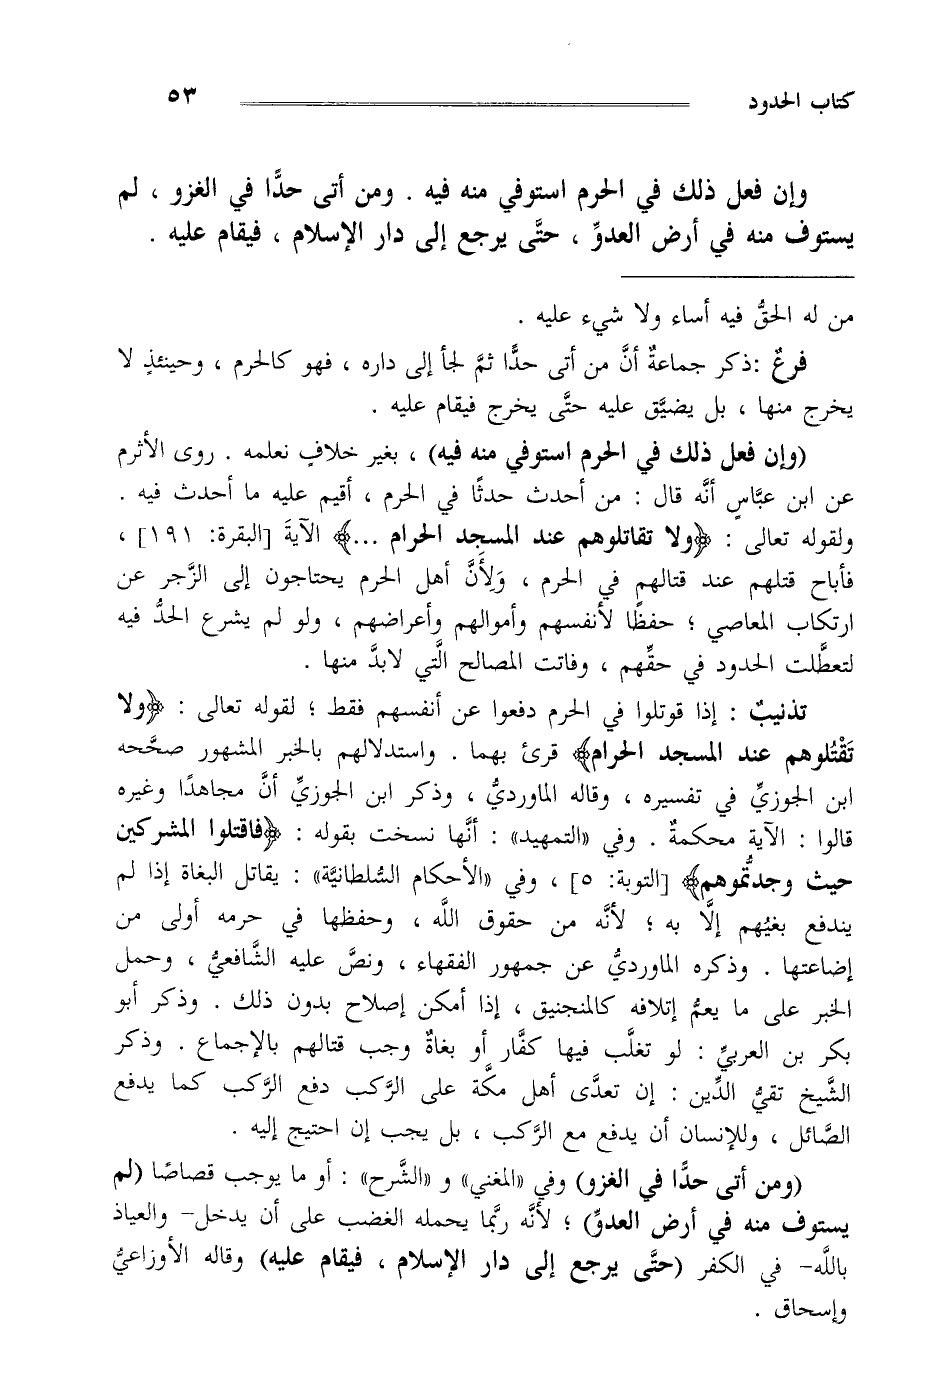 كتاب الحدود ٥٣
وإن فعل ذلك في الحرم استوفي منه فيه . ومن أتى حدًّا في الغزو ، لم
يستوف منه في أرض العدوِّ ، حتَّى يرجع إلى دار الإسلام ، فيقام عليه .
من له الحقُّ فيه أساء ولا شيء عليه .
فرعٌ :ذكر جماعةٌ أنَّ من أتى حدًّا ثمَّ لجأ إلى داره ، فهو كالحرم ، وحينئذٍ لا
يخرج منها ، بل يضيَّق عليه حتَّى يخرج فيقام عليه .
(وإن فعل ذلك في الحرم استوفي منه فيه) ، بغير خلافٍ نعلمه . روى الأثرم
عن ابن عبَّاسٍ أنَّه قال : من أحدث حدثًا في الحرم ، أقيم عليه ما أحدث فيه .
ولقوله تعالى : ﴿ولا تقاتلوهم عند المسجد الحرام ...﴾ الآيةَ [البقرة: ١٩١] ،
فأباح قتلهم عند قتالهم في الحرم ، وَلِأَنَّ أهل الحرم يحتاجون إلى الزَّجر عن
ارتكاب المعاصي ؛ حفظًا لأنفسهم وأموالهم وأعراضهم ، ولو لم يشرع الحدُّ فيه
لتعطَّلت الحدود في حقِّهم ، وفاتت المصالح الَّتي لابدَّ منها .
تذنيبٌ : إذا قوتلوا في الحرم دفعوا عن أنفسهم فقط ؛ لقوله تعالى : ﴿ولا
تَقْتُلوهم عند المسجد الحرام﴾ قرئ بهما . واستدلالهم بالخبر المشهور صحَّحه
ابن الجوزيِّ في تفسيره ، وقاله الماورديُّ ، وذكر ابن الجوزيِّ أنَّ مجاهدًا وغيره
قالوا : الآية محكمةٌ . وفي «التمهيد» : أنَّها نسخت بقوله : ﴿فاقتلوا المشركين
حيث وجدتُّموهم﴾ [التوبة: ٥] ، وفي «الأحكام السُّلطانيَّة» : يقاتل البغاة إذا لم
يندفع بغيُهم إلَّا به ؛ لأنَّه من حقوق اللَّه ، وحفظها في حرمه أولى من
إضاعتها . وذكره الماورديُّ عن جمهور الفقهاء ، ونصَّ عليه الشَّافعيُّ ، وحمل
الخبر على ما يعمُّ إتلافه كالمنجنيق ، إذا أمكن إصلاح بدون ذلك . وذكر أبو
بكر بن العربيِّ : لو تغلَّب فيها كفَّار أو بغاةٌ وجب قتالهم بالإجماع . وذكر
الشَّيخ تقيُّ الدِّين : إن تعدَّى أهل مكَّة على الرَّكب دفع الرَّكب كما يدفع
الصَّائل ، وللإنسان أن يدفع مع الرَّكب ، بل يجب إن احتيج إليه .
(ومن أتى حدًّا في الغزو) وفي «المغني» و «الشَّرح» : أو ما يوجب قصاصًا (لم
يستوف منه في أرض العدوِّ) ؛ لأنَّه ربَّما يحمله الغضب على أن يدخل- والعياذ
باللَّه- في الكفر (حتَّى يرجع إلى دار الإسلام ، فيقام عليه) وقاله الأوزاعيُّ
وإسحاق .